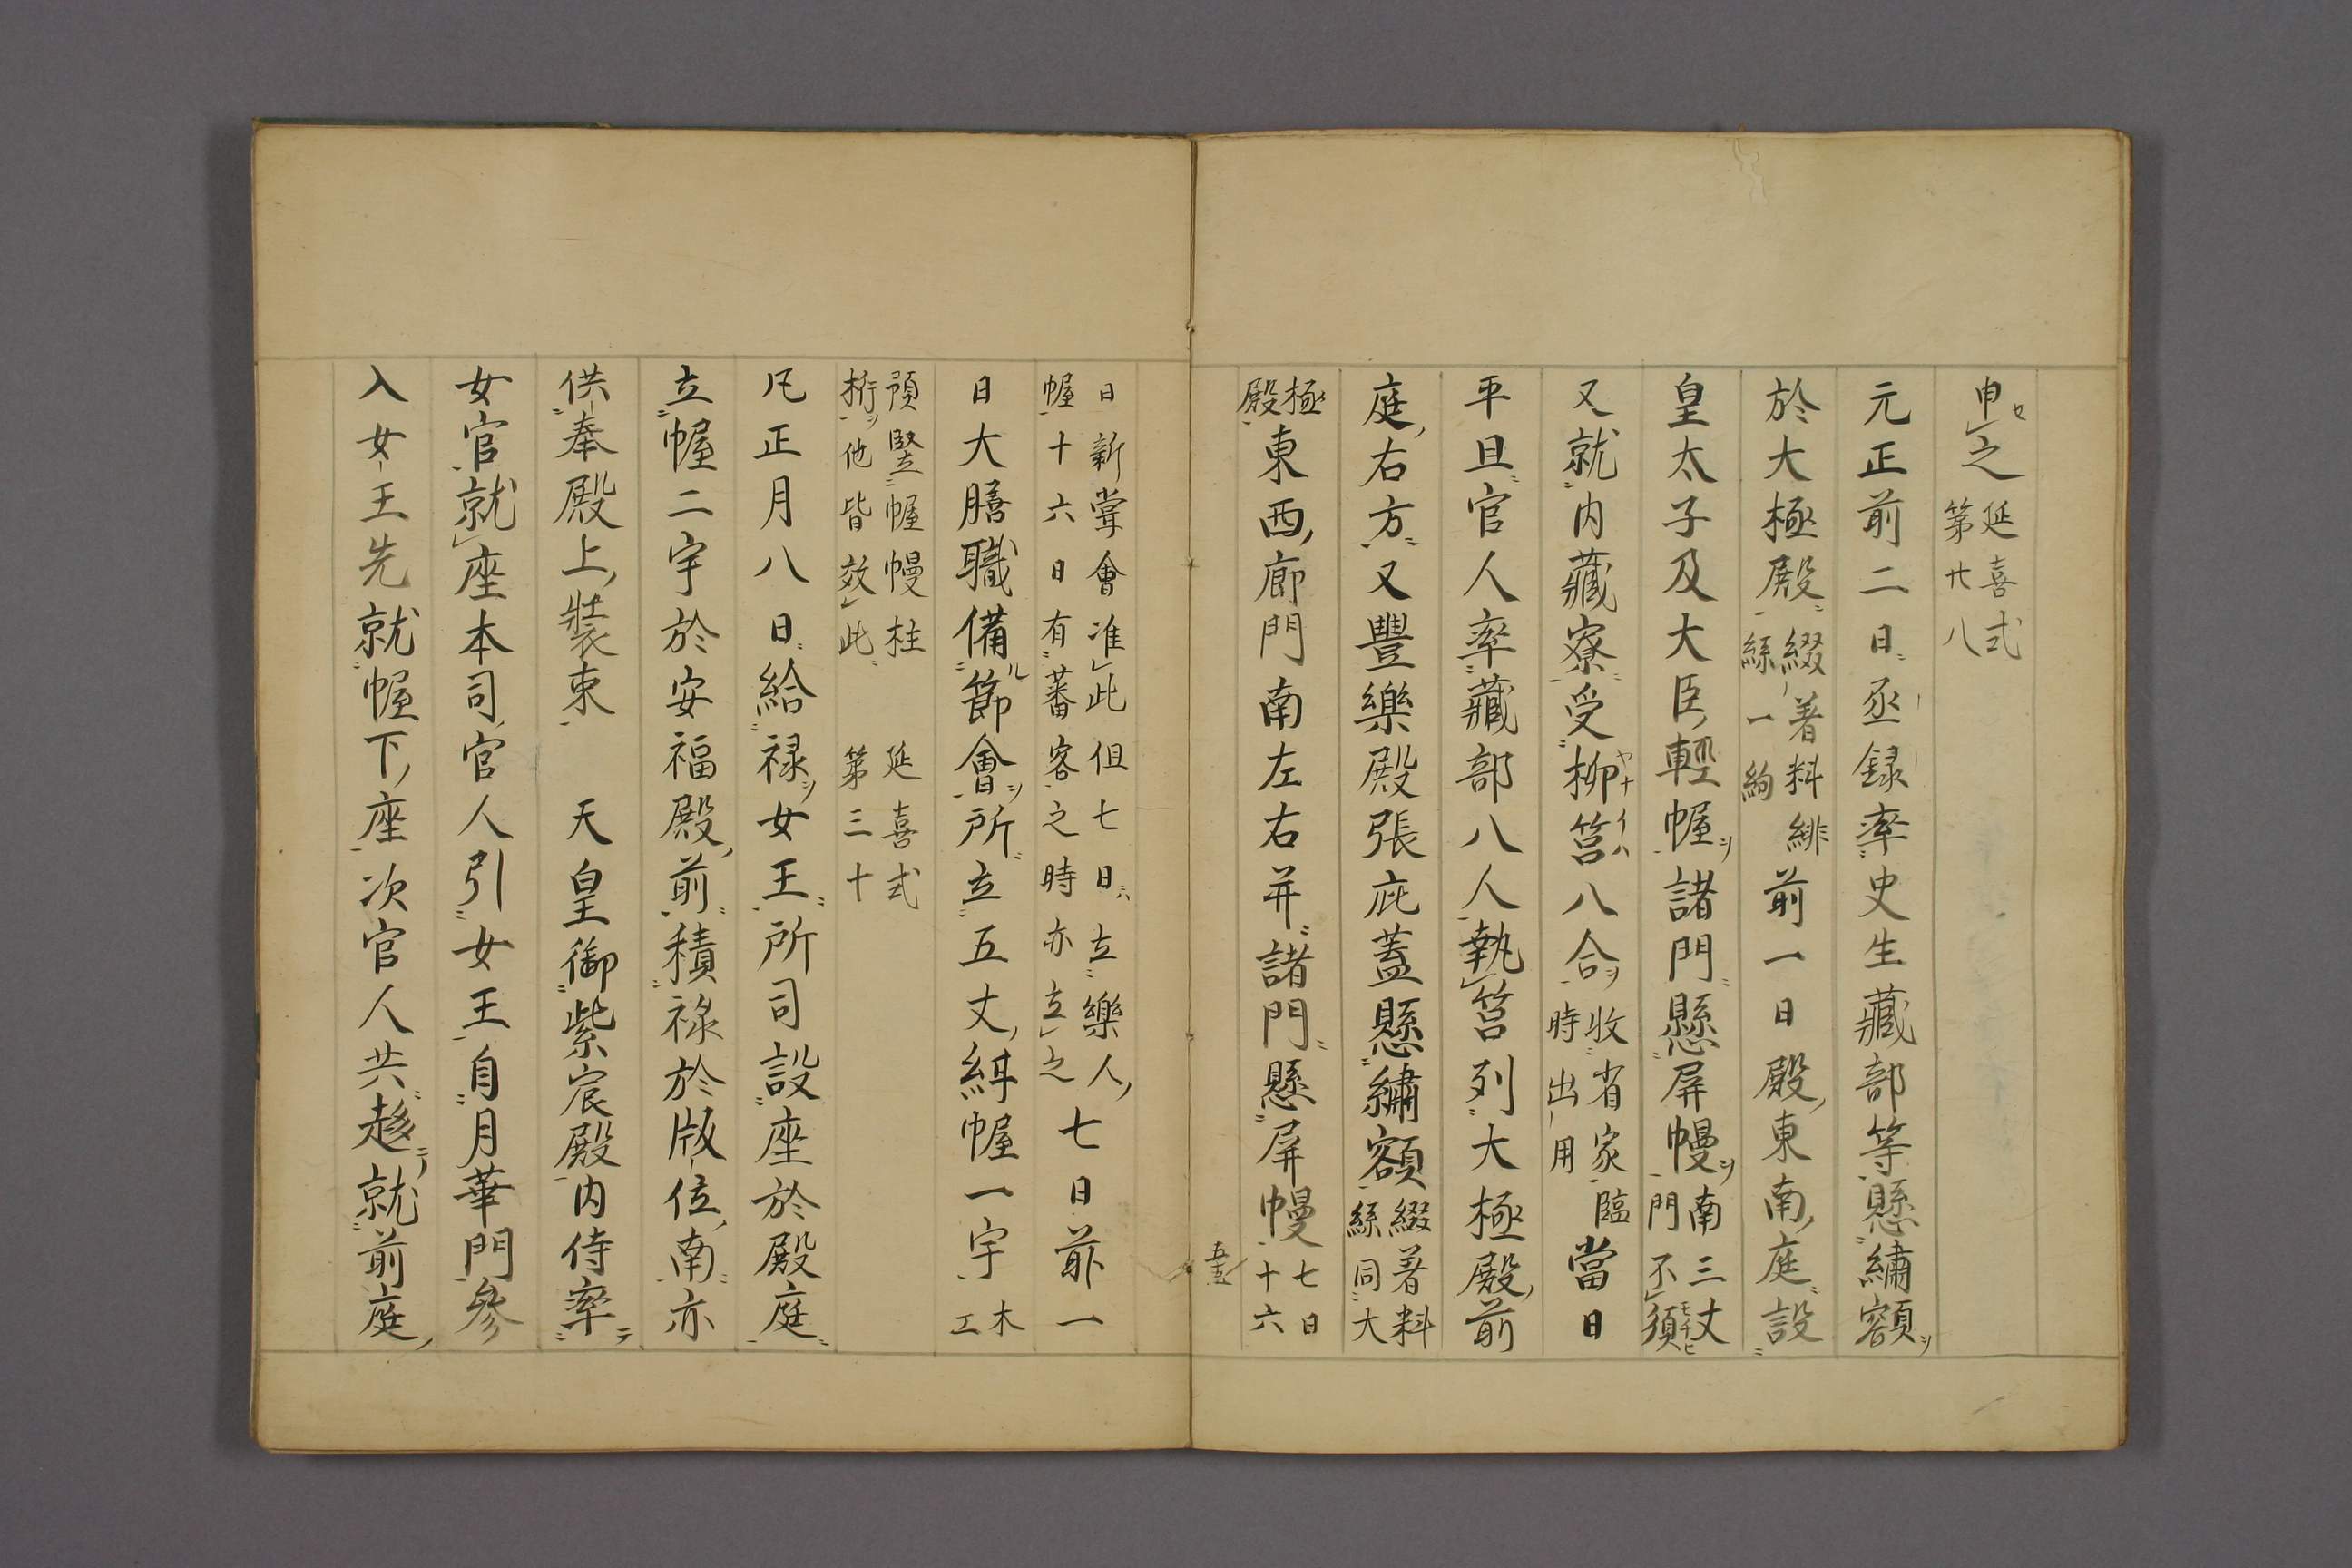 申之延喜式第廿八
元正前二日丞録率史生藏部等懸繡額
於大極殿綴著料緋絲一絇前一日殿東南庭設
皇太子及大臣輕幄諸門懸屏幔南三丈門不須
又就内藏寮受柳筥八合收省家臨時出用當日
平旦官人率藏部八人執筥列大極殿前
庭右方又豐樂殿張庇蓋懸繡額綴著料絲同大
極殿東西廊門南左右并諸門懸屏幔七日十六
日新甞會准此但七日立樂人幄十六日有蕃客之時亦立之七日前一
日大膳職備節會所立五丈絹幄一宇木工
預竪幄幔柱桁他皆效此延喜式第三十
凡正月八日給禄女王所司設座於殿庭
立幄二宇於安福殿前積禄於版位南亦
供奉殿上裝束 天皇御紫宸殿内侍率
女官就座本司官人引女王自月華門參
入女王先就幄下座次官人共趍就前庭